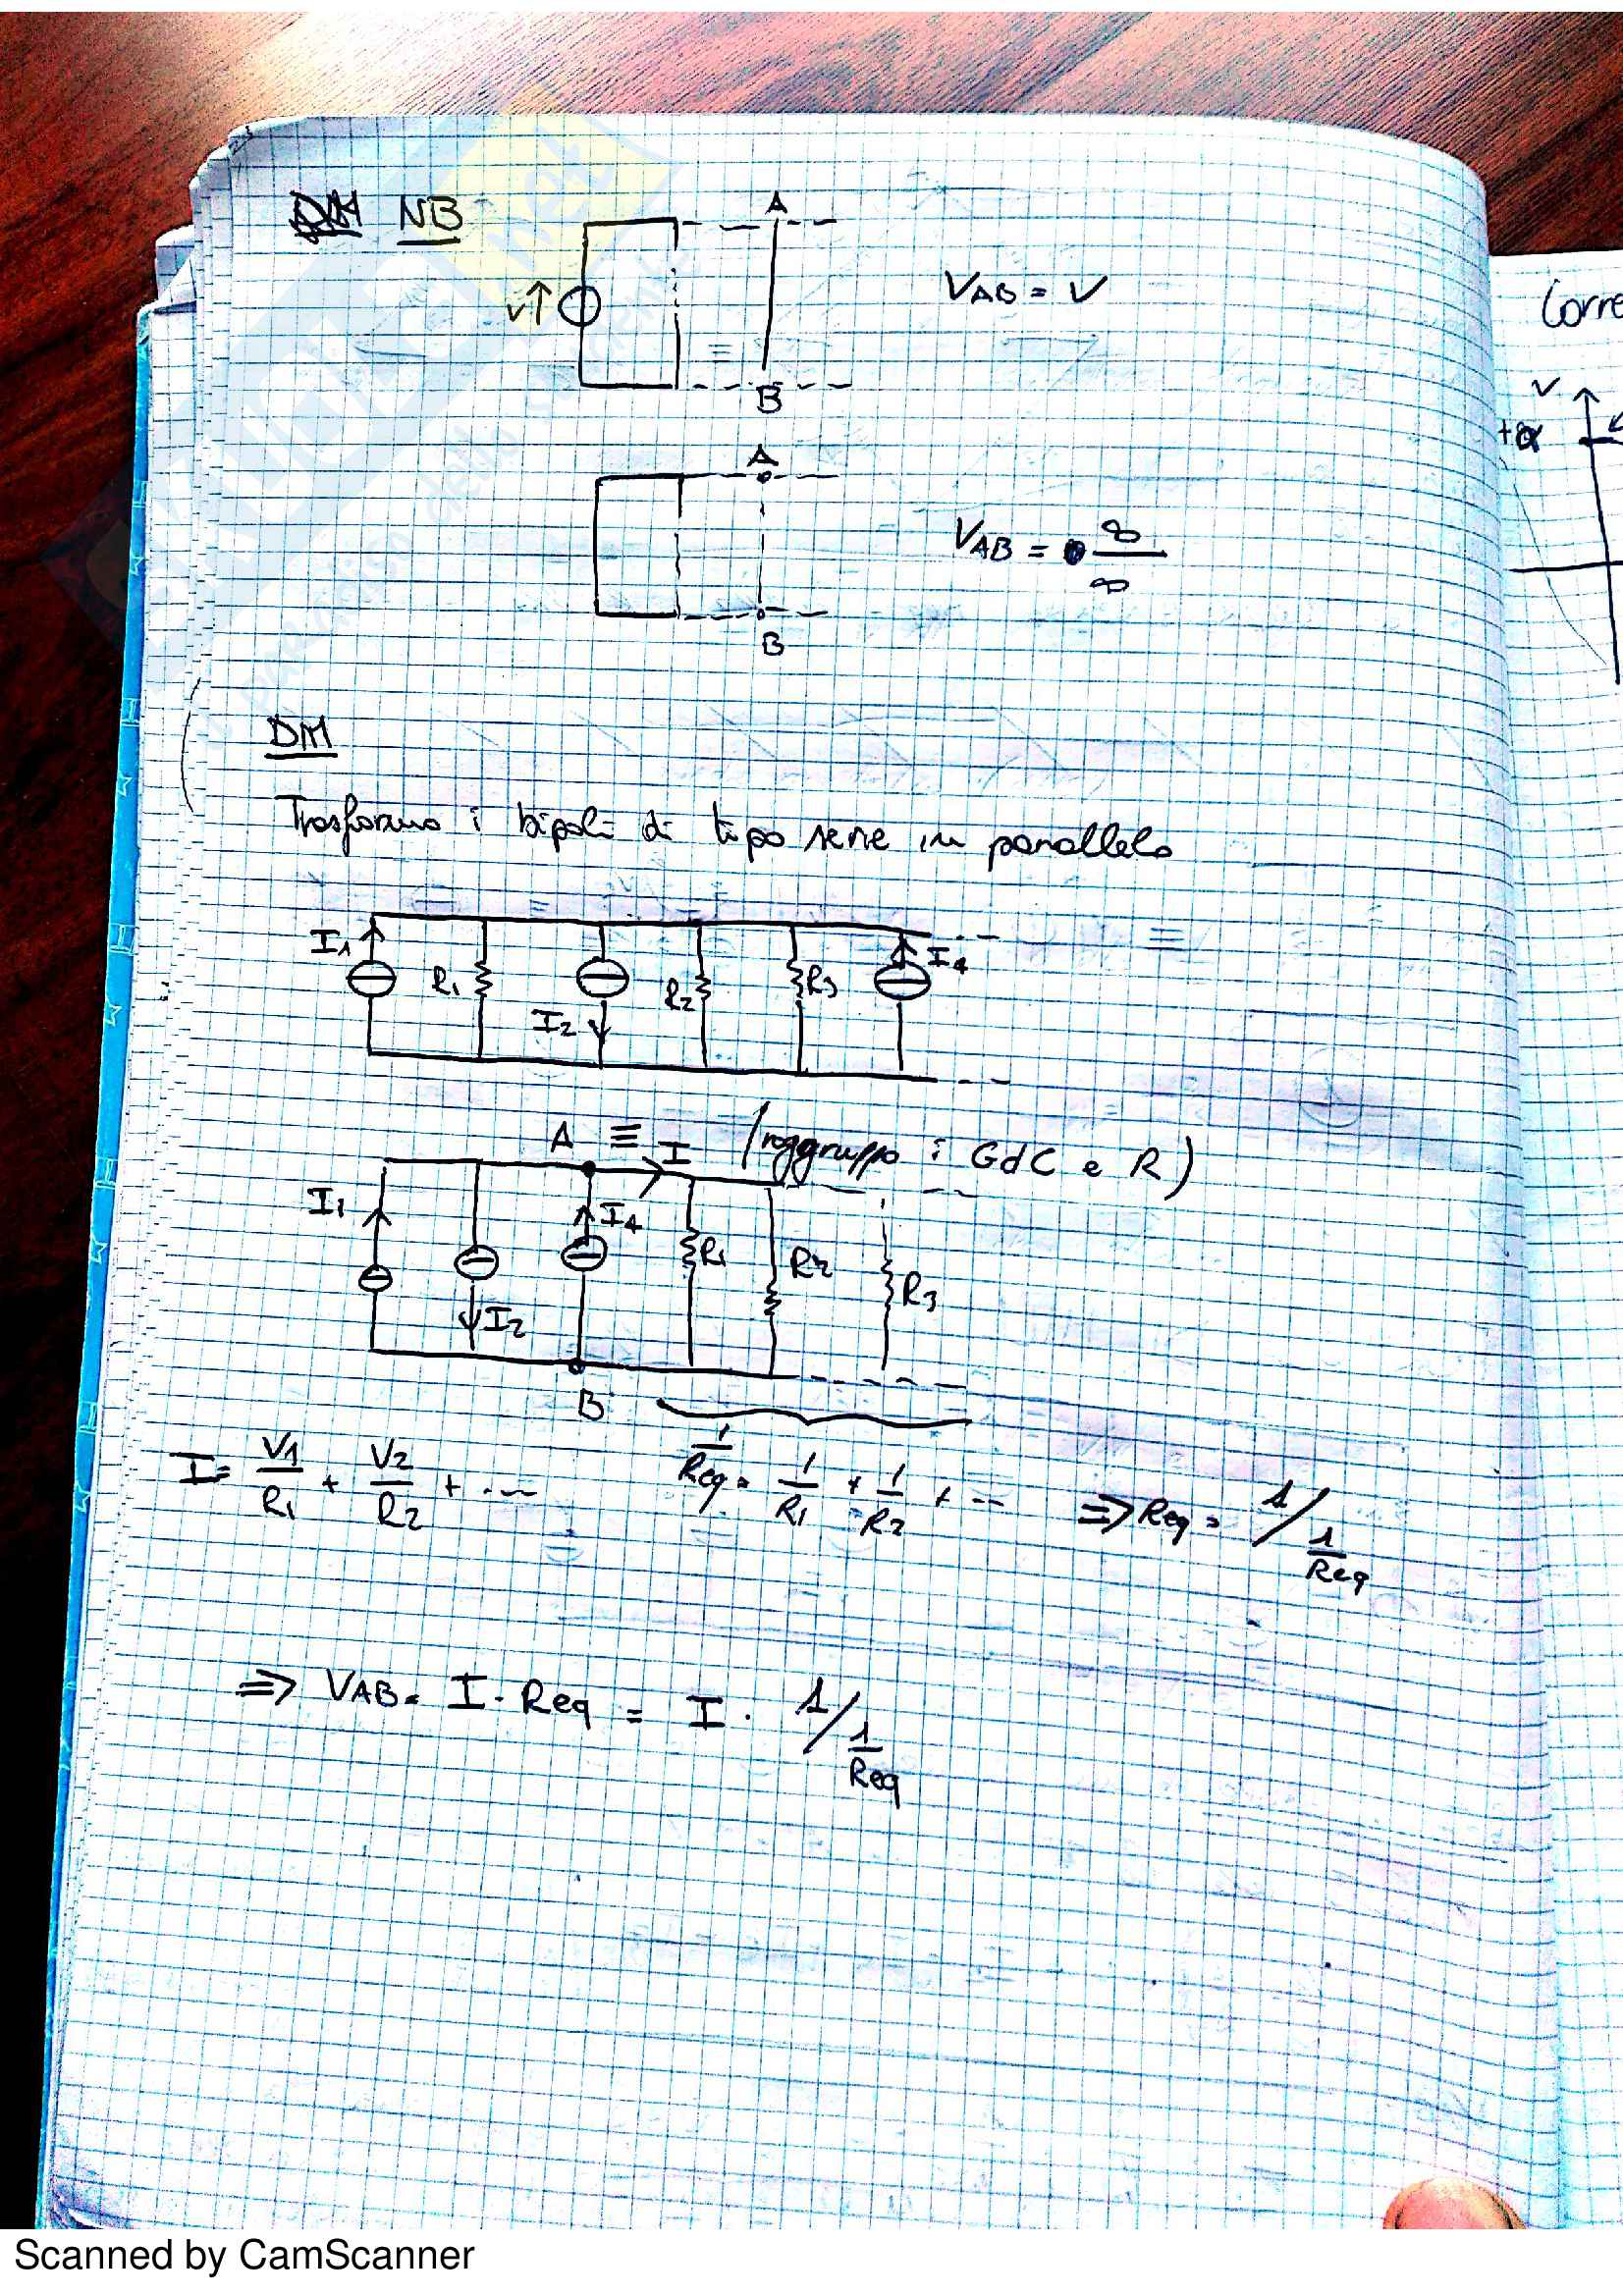 NB
A
V
V_AB = V
B
A
V_AB = ∞/∞
B
DM
Trasformo i bipoli di tipo serie in parallelo
I1 R1 I2 R2 R3 I4 ≡
A ≡ I (raggruppo i GdC e R)
I1 I2 I4 R1 R2 R3
B
I = V1/R1 + V2/R2 + ... 1/Req = 1/R1 + 1/R2 + ... => Req = 1/(1/Req)
=> V_AB = I · Req = I · 1/(1/Req)
Corre
V
+∞
Scanned by CamScanner